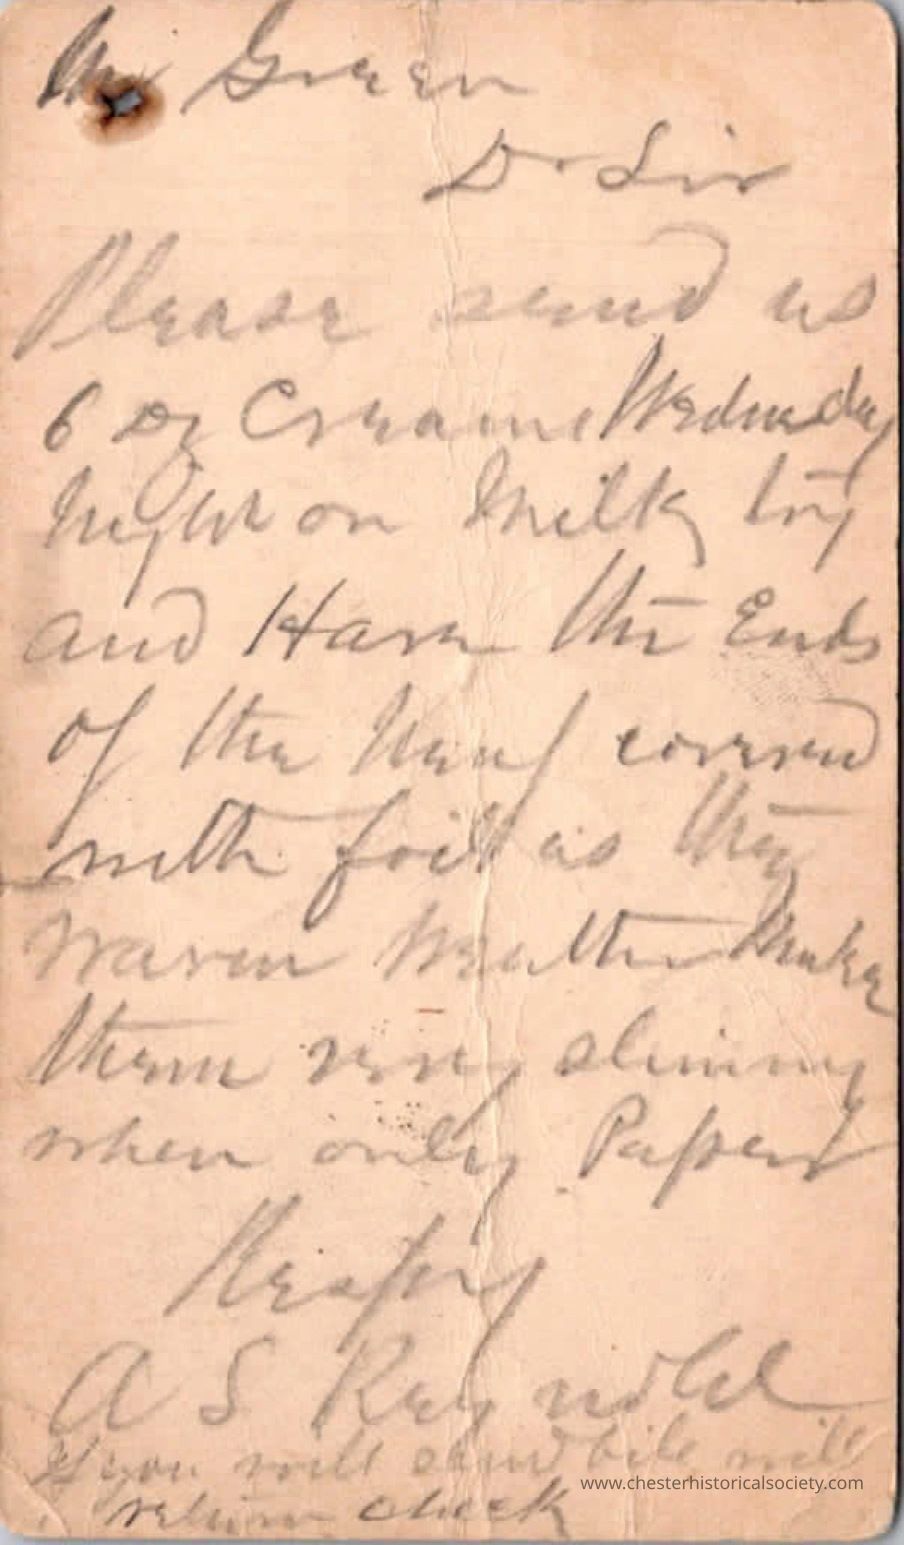 Mr Green
Dr Sir
Please send us
6 Dz Creams Wednesday
Night on Milk
and Have the Ends
of the covered
with foil as the
warm weather Make
them very slimy
when only Paper
Respy
A S Reynolds
If you will send bill will
return check
www.chesterhistoricalsociety.com